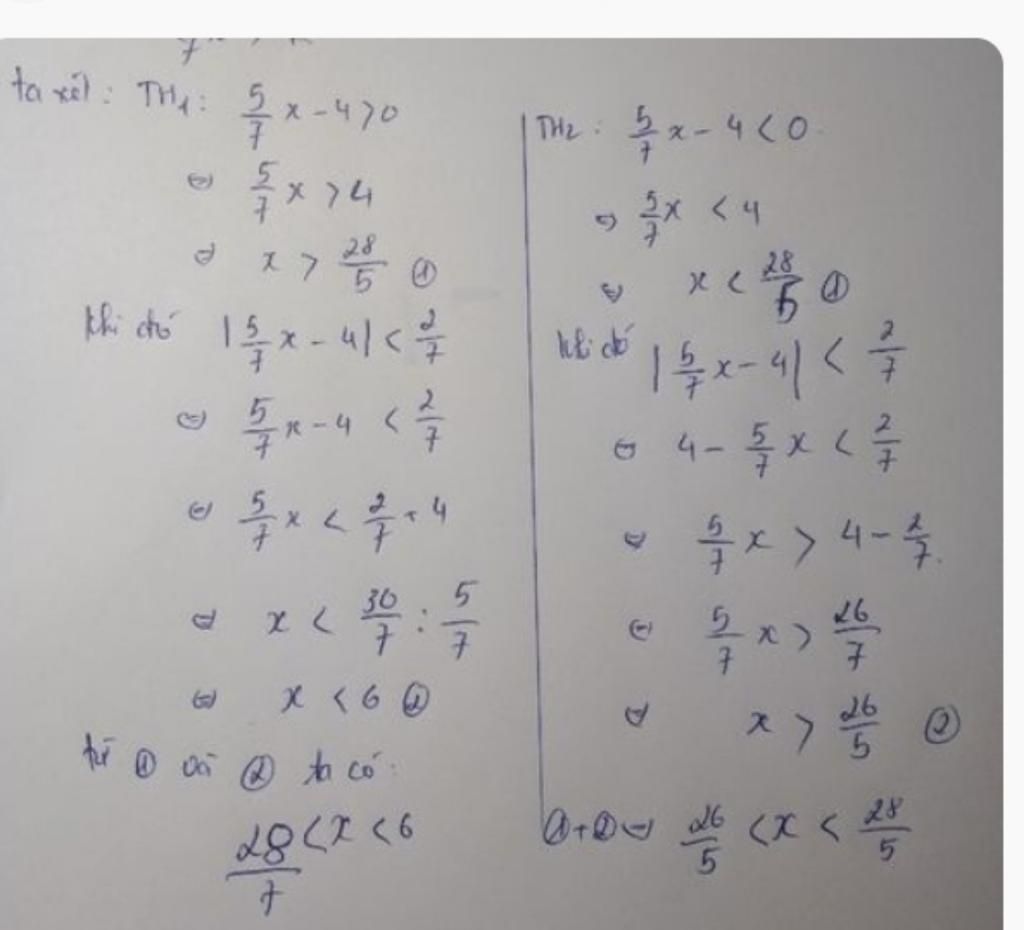 ta xét: TH1: 5/7 x - 4 > 0
⇔ 5/7 x > 4
⇔ x > 28/5 ①
khi đó |5/7 x - 4| < 2/7
⇔ 5/7 x - 4 < 2/7
⇔ 5/7 x < 2/7 + 4
⇔ x < 30/7 : 5/7
⇔ x < 6 ②
từ ① và ② ta có:
28/7 < x < 6
TH2: 5/7 x - 4 < 0
⇔ 5/7 x < 4
⇔ x < 28/5 ①
khi đó |5/7 x - 4| < 2/7
⇔ 4 - 5/7 x < 2/7
⇔ 5/7 x > 4 - 2/7.
⇔ 5/7 x > 26/7
⇔ x > 26/5 ②
①+②⇔ 26/5 < x < 28/5